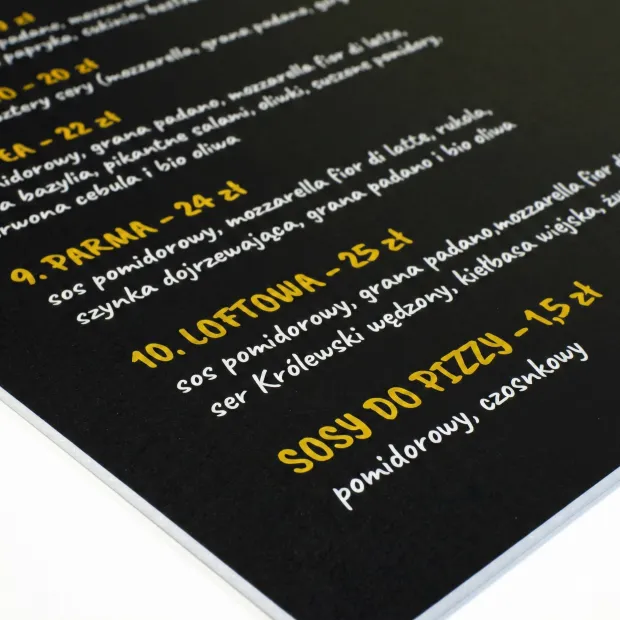 9 zł
padano, mozzarella
papryka, cukinia,
O - 20 zł
cztery sery (mozzarella, grana padano,
EA - 22 zł
midorowy, grana padano, mozzarella fior di latte,
a bazylia, pikantne salami, oliwki, suszone pomidory,
erwona cebula i bio oliwa
9. PARMA - 24 zł
sos pomidorowy, mozzarella fior di latte, rukola,
szynka dojrzewająca, grana padano i bio oliwa
10. LOFTOWA - 25 zł
sos pomidorowy, grana padano,mozzarella fior d
ser Królewski wędzony, kiełbasa wiejska, żu
SOSY DO PIZZY - 1,5 zł
pomidorowy, czosnkowy